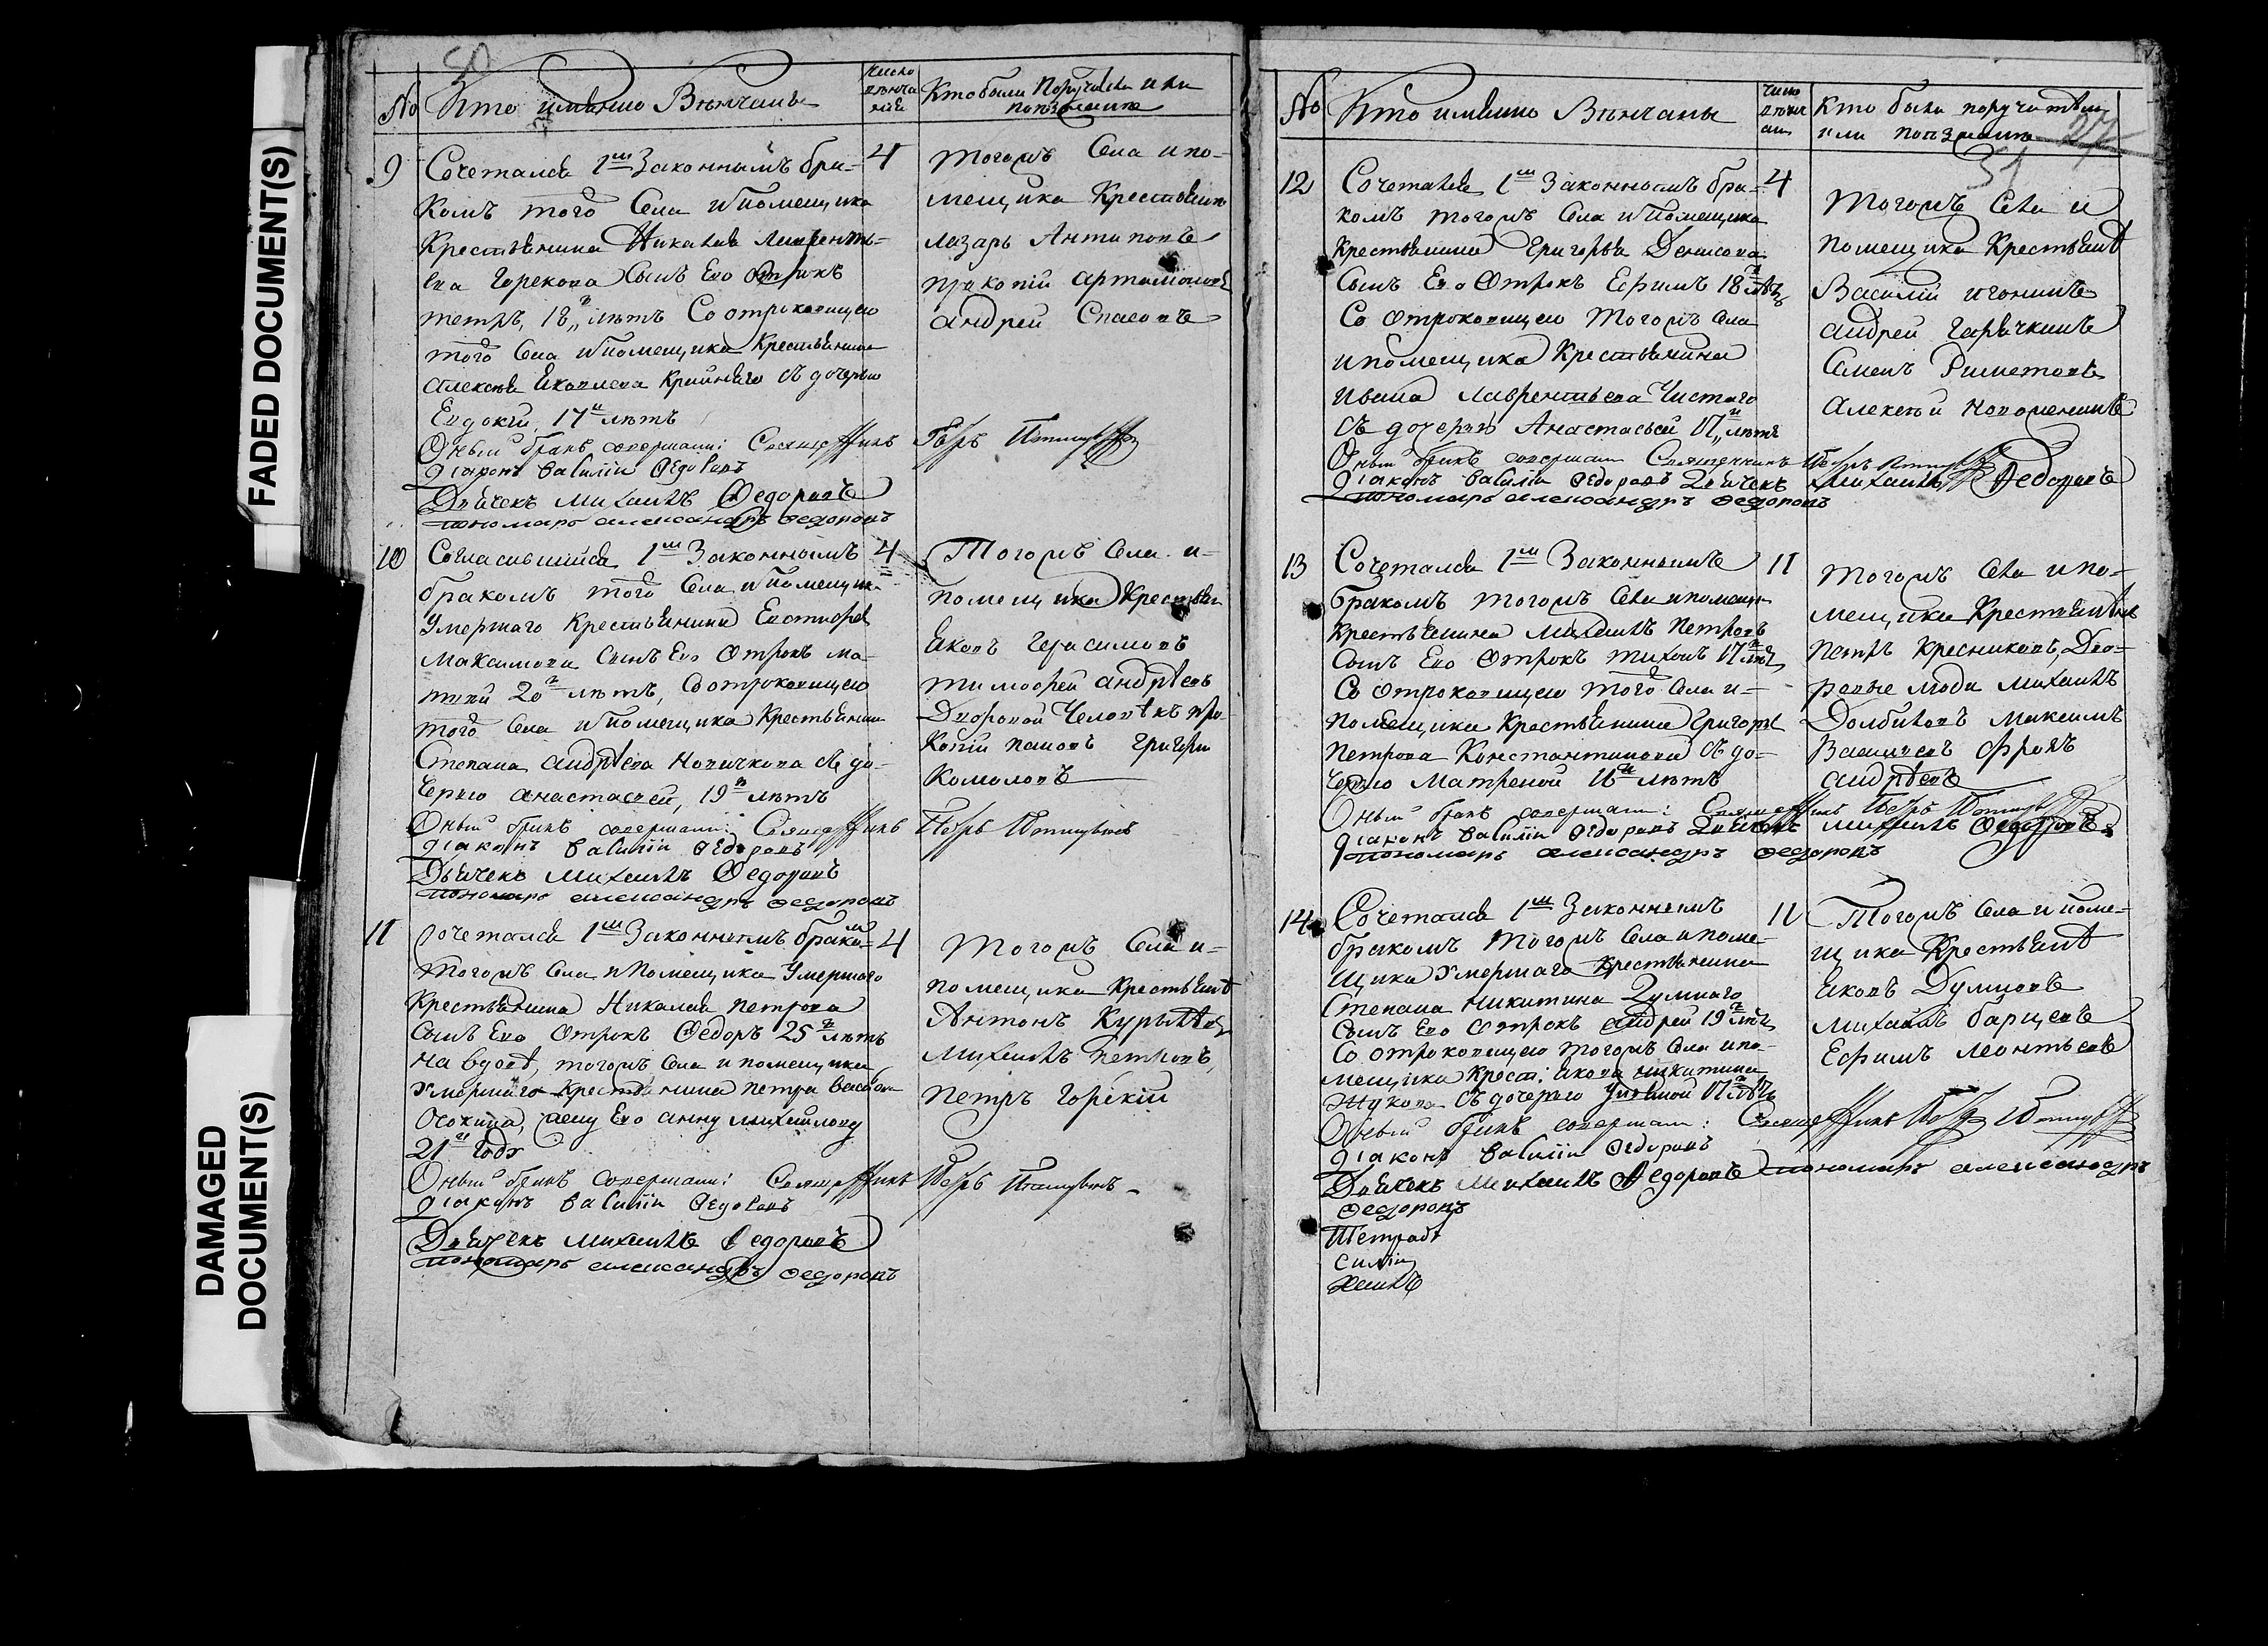 FADED DOCUMENT(S)
DAMAGED
DOCUMENT(S)
50
No
Кто имѣнно Вѣнчаны
Число вѣнча нія
Кто были Поручители или
поѣзжанѣ
9
Сочетался 1мъ Законнымъ бра-
4
комъ того Села и помещика
Крестьянина Николая Лаврентъ-
ева Горекова Сынъ Его Отрокъ
петръ, 18ти лѣтъ Со отроковицею
того Села и помещика Крестьянина
Алексѣя Яковлева Крайнева съ дочерью
Евдокіи, 17и лѣтъ
Оный бракъ совершали: Священникъ Петръ
діаконъ Василіи Ѳедоровъ
Дьячекъ Михаилъ Ѳедоровъ
пономарь александръ ѳедоровъ
Тогожъ Села и по-
мещика Крестьянѣ
лазарь Антиповъ
пракопій артамоновъ
андрей Спасовъ
10
Согласившійся 1мъ Законнымъ
4
бракомъ того Села и помещика
Умершаго Крестьянина
Максимова Сынъ Его Отрокъ ма-
твѣй 20ти лѣтъ, Со отроковицею
того Села и помещика Крестьянина
Степана андрѣева Новичкова съ до-
черью анастасіей, 19ти лѣтъ
Оный бракъ совершали: Священникъ Петръ
діаконъ Василіи Ѳедоровъ
Дьячекъ Михаилъ Ѳедоровъ
пономарь александръ ѳедоровъ
Тогожъ Села и-
помещика Крестьян
Яковъ Герасимовъ
тимофей андрѣевъ
Дворовой Человѣкъ про-
копій пановъ григори
Комоловъ
11
Сочетался 1мъ Законнымъ бракомъ
4
Тогожъ Села и Помещика Умершаго
Крестьянина Николая петрова
Сынъ Его Отрокъ Ѳедоръ 25ти лѣтъ
на вдовѣ, тогожъ Села и помещика
Умершаго Крестьянина петра
Осокина, жену Его анну михайлову
21го году
Оный бракъ совершали: Священникъ Петръ
діаконъ Василіи Ѳедоровъ
Дьячекъ Михаилъ Ѳедоровъ
пономарь александръ ѳедоровъ
Тогожъ Села и-
помещика Крестьянѣ
Антонъ
Михаилъ петровъ,
петръ Горскій
No
Кто имѣнно Вѣнчаны
Число вѣнча
Кто были поручители
или поѣзжанѣ
27
51
12
Сочетался 1мъ Законнымъ бра-
4
комъ тогожъ Села и Помещика
Крестьянина Григорья Денисова
Сынъ Его Отрокъ Ефимъ 18ти лѣтъ
Со Отроковицею Тогожъ Села
и помещика Крестьянина
Ивана Лаврентьева Чистаго
съ дочерью Анастасьей 17ти лѣтъ
Оный бракъ совершали Священникъ Петръ
діаконъ Василіи Ѳедоровъ Дьячекъ Михаилъ Ѳедоровъ
пономарь александръ ѳедоровъ
Тогожъ Села и
помещика Крестьянѣ
Василій игонинъ
андрей Гарячкинъ
Семенъ
Алексѣй
13
Сочетался 1мъ Законнымъ
11
бракомъ тогожъ Села и помещи-
Крестьянина Михаилъ Петровъ
Сынъ Его Отрокъ тихонъ 17ти лѣтъ
Со Отроковицею того Села и-
помещика Крестьянина Григорья
петрова Константинова съ до-
черью Матреной 16ти лѣтъ
Оный бракъ совершали: Священникъ Петръ
діаконъ Василіи Ѳедоровъ Дьячекъ Михаилъ Ѳедоровъ
пономарь александръ ѳедоровъ
Тогожъ Села и по-
мещика Крестьянѣ
петръ Кресниковъ, Дво-
ровые люди Михаилъ
Долбиловъ Максимъ
Василевъ Фролъ
андрѣевъ
14
Сочетался 1мъ Законнымъ
11
бракомъ Тогожъ Села и поме-
щика Умершаго Крестьянина
Степана никитина Думнаго
Сынъ Его Отрокъ андрей 19ти лѣтъ
Со отроковицею тогожъ Села и по-
мещика Крест: якова никитина
Жукова съ дочерью Ульяной 17ти лѣтъ
Оный бракъ совершали: Священникъ Петръ
діаконъ Василіи Ѳедоровъ
Дьячекъ Михаилъ Ѳедоровъ пономарь александръ
ѳедоровъ
Тогожъ Села и поме-
щика Крестьянѣ
Яковъ Думновъ
Михайлъ барщевъ
Ефимъ Леонтьевъ